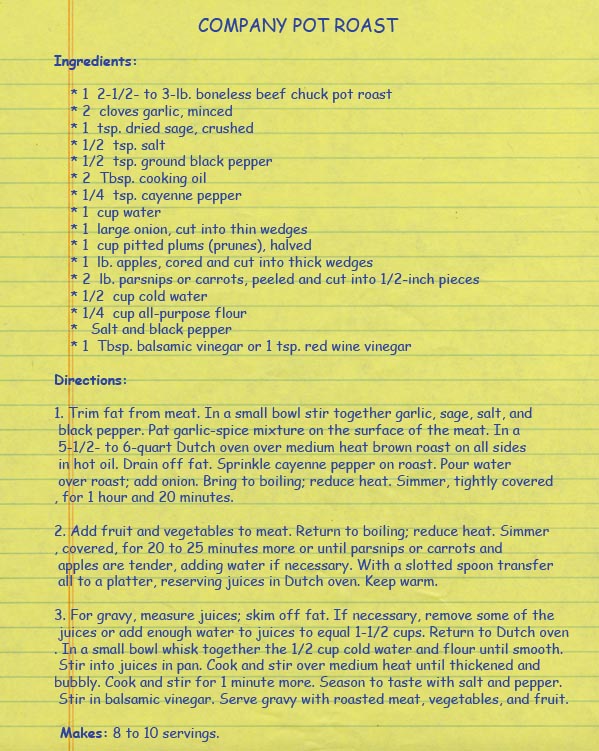 COMPANY POT ROAST
Ingredients:
* 1 2-1/2- to 3-lb. boneless beef chuck pot roast
* 2 cloves garlic, minced
* 1 tsp. dried sage, crushed
* 1/2 tsp. salt
* 1/2 tsp. ground black pepper
* 2 Tbsp. cooking oil
* 1/4 tsp. cayenne pepper
* 1 cup water
* 1 large onion, cut into thin wedges
* 1 cup pitted plums (prunes), halved
* 1 lb. apples, cored and cut into thick wedges
* 2 lb. parsnips or carrots, peeled and cut into 1/2-inch pieces
* 1/2 cup cold water
* 1/4 cup all-purpose flour
* Salt and black pepper
* 1 Tbsp. balsamic vinegar or 1 tsp. red wine vinegar
Directions:
1. Trim fat from meat. In a small bowl stir together garlic, sage, salt, and
black pepper. Pat garlic-spice mixture on the surface of the meat. In a
5-1/2- to 6-quart Dutch oven over medium heat brown roast on all sides
in hot oil. Drain off fat. Sprinkle cayenne pepper on roast. Pour water
over roast; add onion. Bring to boiling; reduce heat. Simmer, tightly covered
, for 1 hour and 20 minutes.
2. Add fruit and vegetables to meat. Return to boiling; reduce heat. Simmer
, covered, for 20 to 25 minutes more or until parsnips or carrots and
apples are tender, adding water if necessary. With a slotted spoon transfer
all to a platter, reserving juices in Dutch oven. Keep warm.
3. For gravy, measure juices; skim off fat. If necessary, remove some of the
juices or add enough water to juices to equal 1-1/2 cups. Return to Dutch oven
. In a small bowl whisk together the 1/2 cup cold water and flour until smooth.
Stir into juices in pan. Cook and stir over medium heat until thickened and
bubbly. Cook and stir for 1 minute more. Season to taste with salt and pepper.
Stir in balsamic vinegar. Serve gravy with roasted meat, vegetables, and fruit.
Makes: 8 to 10 servings.